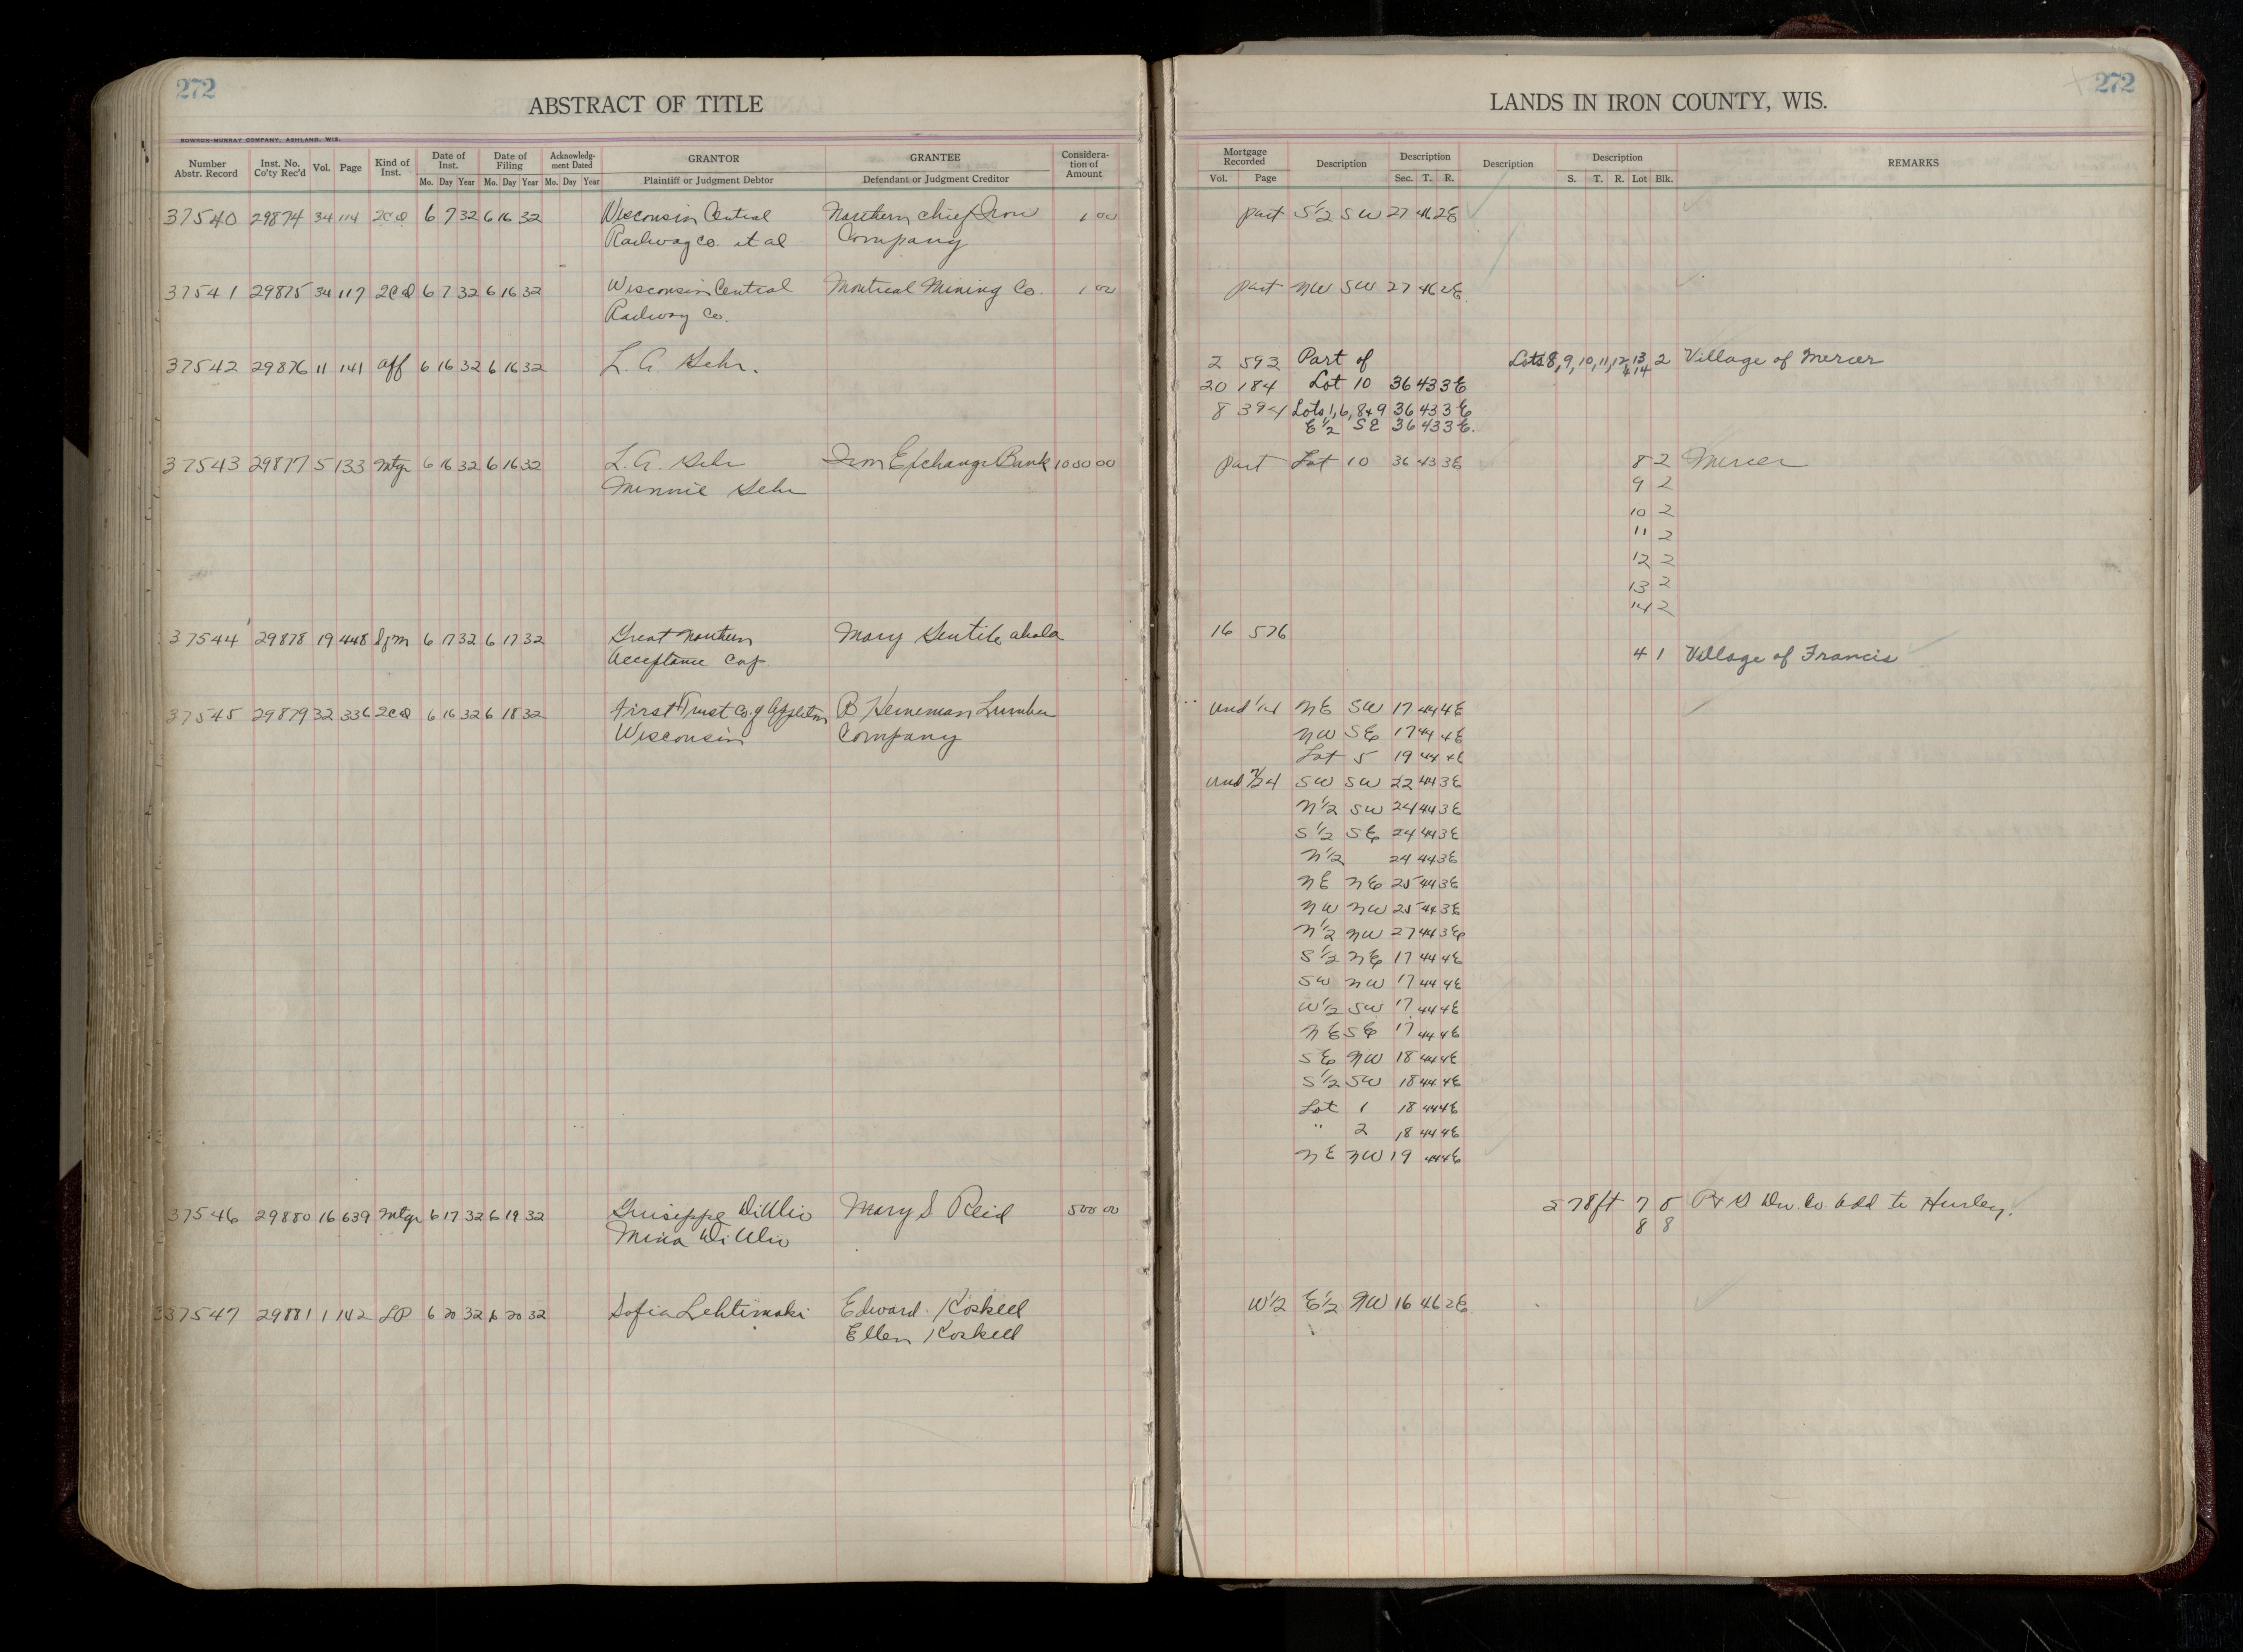 272
ABSTRACT OF TITLE
BOWSON-MURRAY COMPANY, ASHLAND, WIS.
Number Abstr. Record Inst. No. Co'ty Rec'd Vol. Page Kind of Inst. Date of Inst. Date of Filing Acknowledg-ment Dated GRANTOR GRANTEE Considera-tion of Amount
Mo. Day Year Mo. Day Year Mo. Day Year Plaintiff or Judgment Debtor Defendant or Judgment Creditor
37540 29874 34 114 2CD 6 7 32 6 16 32 Wisconsin Central Northern Chief Iron 1 00
Railway Co. et al Company
37541 29875 34 117 2CD 6 7 32 6 16 32 Wisconsin Central Montreal Mining Co. 1 00
Railway Co.
37542 29876 11 141 Aff 6 16 32 6 16 32 L. A. Sehr.
37543 29877 5 133 Mtge 6 16 32 6 16 32 L. A. Sehr Iron Exchange Bank 1000 00
Minnie Sehr
37544 29878 19 448 6 17 32 6 17 32 Great Northern Mary Gentile
Acceptance Corp
37545 29879 32 336 2CD 6 16 32 6 18 32 First Trust Co. of Appleton B Heineman Lumber
Wisconsin Company
37546 29880 16 639 Mtge 6 17 32 6 19 32 Guiseppe DiUlio Mary S Reid 500 00
Mina DiUlio
37547 29881 1 142 LP 6 20 32 6 20 32 Sofia Lehtimaki Edward Koskell
Ellen Koskell
272
LANDS IN IRON COUNTY, WIS.
Mortgage Recorded Description Description Description Description REMARKS
Vol. Page Sec. T. R. S. T. R. Lot Blk.
part S½ SW 27 46 2E
part NW SW 27 46 2E
2 593 Part of Lots 8, 9, 10, 11, 12, 13, & 14 2 Village of Mercer
20 184 Lot 10 36 43 3E
8 394 Lots 1, 6, 8 & 9 36 43 3E
E½ SE 36 43 3E.
part Lot 10 36 43 3E 8 2 Mercer
9 2
10 2
11 2
12 2
13 2
14 2
16 576
4 1 Village of Francis
Und 1/14 NE SW 17 44 4E
NW SE 17 44 4E
Lot 5 19 44 4E
Und 7/24 SW SW 22 44 3E
N½ SW 24 44 3E
S½ SE 24 44 3E
N½ 24 44 3E
NE NE 25 44 3E
NW NW 25 44 3E
N½ NW 27 44 3E
S½ NE 17 44 4E
SW NW 17 44 4E
W½ SW 17 44 4E
NE SE 17 44 4E
SE NW 18 44 4E
S½ SW 18 44 4E
Lot 1 18 44 4E
" 2 18 44 4E
NE NW 19 44 4E
S 78ft 7 8 Co. Add to Hurley.
8 8
W½ E½ NW 16 46 2E